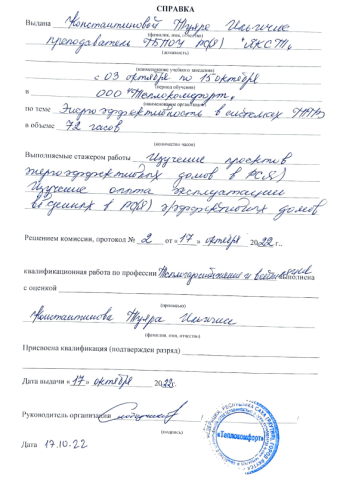 СПРАВКА
Выдана Константиновой Туяре Ильичне
(фамилия, имя, отчество)
преподаватель ГБПОУ РС(Я) "ЯКСТ",
(должность)
(наименование учебного заведения)
с 03 октября по 15 октября
(период обучения)
в ООО "Теплокомфорт",
(наименование организации)
по теме Энергоэффективность в системах
в объеме 72 часов
(количество часов)
Выполняемые стажером работы Изучение проектов
энергоэффективных домов в РС(Я)
Изучение опыта эксплуатации
в РС(Я) эффективных домов
Решением комиссии, протокол № 2 от «17» октября 2022 г.,
квалификационная работа по профессии Теплогазоснабжение и вентиляция выполнена
с оценкой
(прописью)
Константинова Туяра Ильичн
(фамилия, имя, отчество)
Присвоена квалификация (подтвержден разряд)
Дата выдачи «17» октября 2022г.
Руководитель организации / /
(подпись)
«Теплокомфорт»
Дата 17.10.22